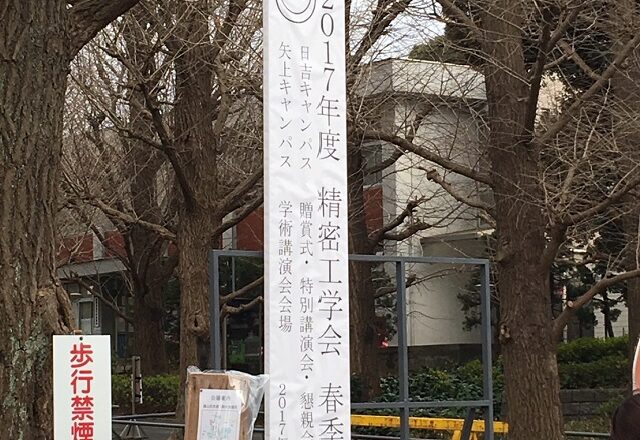 2017年度 精密工学会 春季
日吉キャンパス 贈賞式・特別講演会・懇親会
矢上キャンパス 学術講演会会場 2017年
歩行禁煙